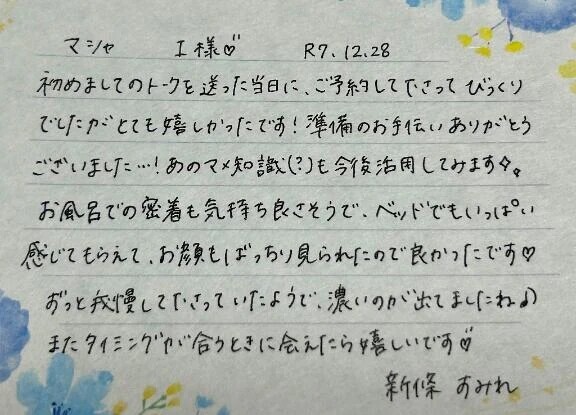 マシャ I様♡ R7.12.28
初めましてのトークを送った当日に、ご予約して下さってびっくり
でしたがとても嬉しかったです！準備のお手伝いありがとう
ございました…！あのマメ知識(?)も今後活用してみます✧。
お風呂での密着も気持ち良さそうで、ベッドでもいっぱい
感じてもらえて、お顔もばっちり見られたので良かったです♡
ずっと我慢して下さっていたようで、濃いのが出てましたね♪
またタイミングが合うときに会えたら嬉しいです♡
新條 すみれ